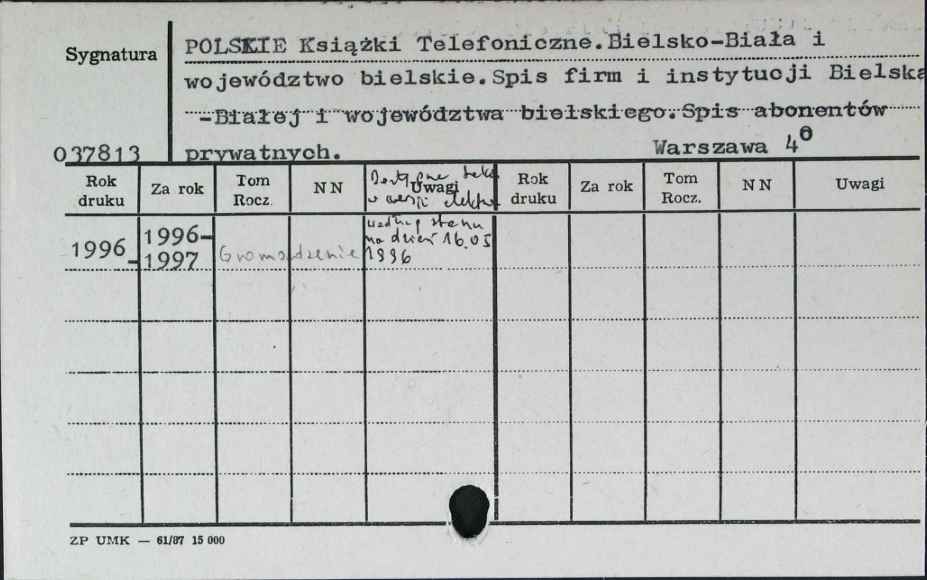 Sygnatura
POLSKIE Książki Telefoniczne.Bielsko-Biała i
województwo bielskie.Spis firm i instytucji Bielska
-Białej i województwa bielskiego.Spis abonentów
037813 prywatnych. Warszawa 4°
Rok druku Za rok Tom Rocz. NN Uwagi Rok druku Za rok Tom Rocz. NN Uwagi
Dostępne także
w wersji elektr
1996 1996-1997 Gromadzenie
według stanu
na dzień 16.05
1996
ZP UMK — 61/87 15 000